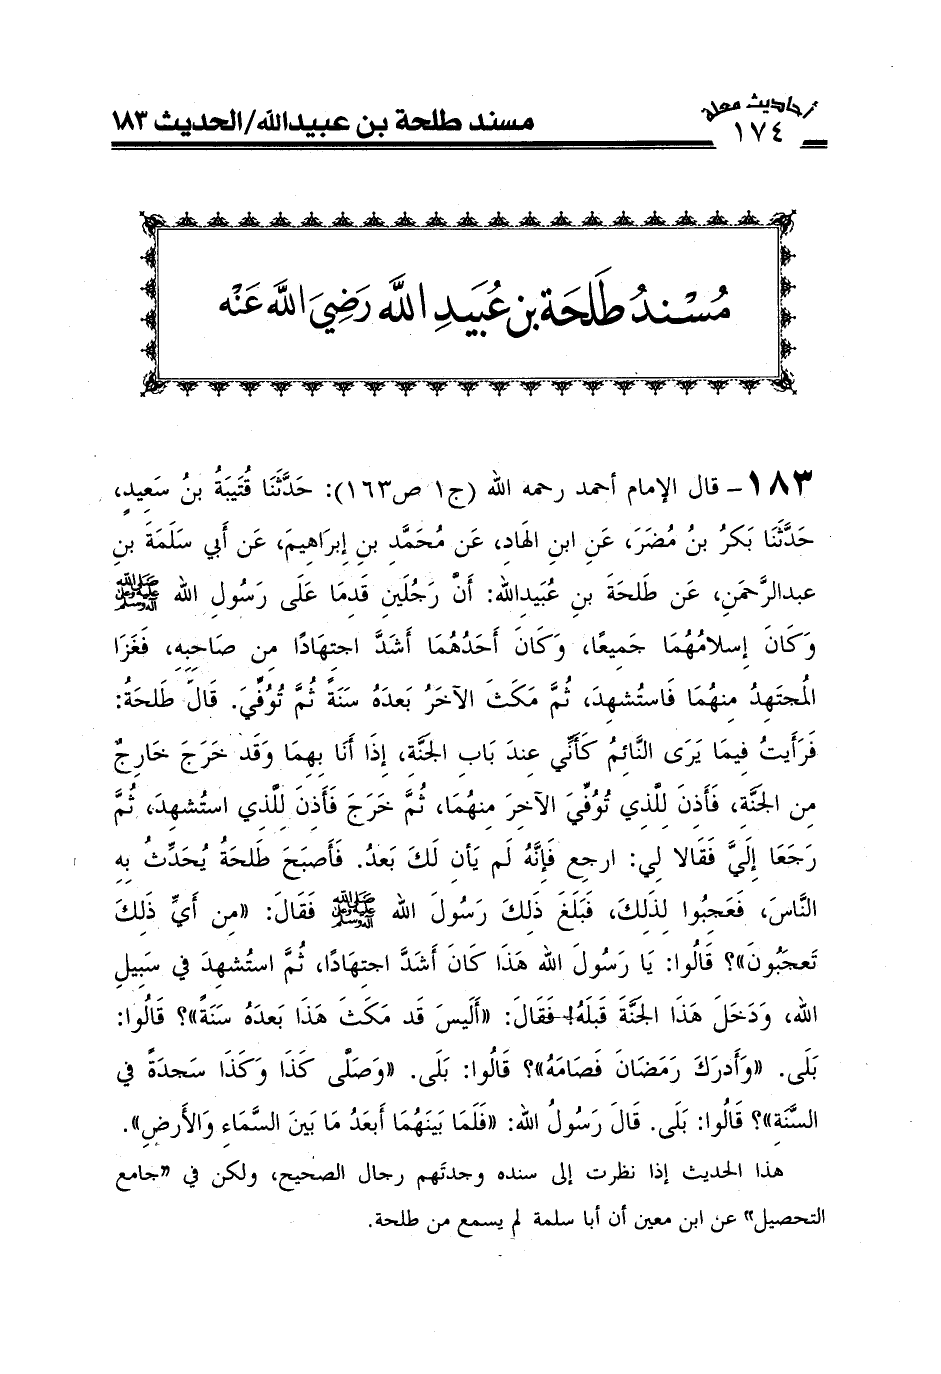 أحاديث معلة
١٧٤
مسند طلحة بن عبيدالله/الحديث ١٨٣
مُسْنَدُ طَلحَة بن عُبَيدِ اللَّه رَضِيَ اللَّه عَنْه
١٨٣ - قال الإمام أحمد رحمه الله (ج١ ص١٦٣): حَدَّثَنَا قُتَيبَةُ بنُ سَعِيدٍ،
حَدَّثَنَا بَكرُ بنُ مُضَرَ، عَنِ ابنِ الهَادِ، عَن مُحَمَّدِ بنِ إِبرَاهِيمَ، عَن أَبي سَلَمَةَ بنِ
عبدالرَّحمَنِ، عَن طَلحَةَ بنِ عُبَيدالله: أَنَّ رَجُلَينِ قَدِمَا عَلَى رَسُولِ الله ﷺ
وَكَانَ إِسلامُهُمَا جَمِيعًا، وَكَانَ أَحَدُهُمَا أَشَدَّ اجتِهَادًا مِن صَاحِبِهِ، فَغَزَا
المُجتَهِدُ مِنهُمَا فَاستُشهِدَ، ثُمَّ مَكَثَ الآخَرُ بَعدَهُ سَنَةً ثُمَّ تُوُفِّيَ. قَالَ طَلحَةُ:
فَرَأَيتُ فِيمَا يَرَى النَّائِمُ كَأَنِّي عِندَ بَابِ الجَنَّةِ، إِذَا أَنَا بِهِمَا وَقَد خَرَجَ خَارِجٌ
مِن الجَنَّةِ، فَأَذِنَ لِلَّذِي تُوُفِّيَ الآخِرَ مِنهُمَا، ثُمَّ خَرَجَ فَأَذِنَ لِلَّذِي استُشهِدَ، ثُمَّ
رَجَعَا إِلَيَّ فَقَالا لِي: ارجِع فَإِنَّهُ لَم يَأنِ لَكَ بَعدُ. فَأَصبَحَ طَلحَةُ يُحَدِّثُ بِهِ
النَّاسَ، فَعَجِبُوا لِذَلِكَ، فَبَلَغَ ذَلِكَ رَسُولَ الله ﷺ فَقَالَ: «مِن أَيِّ ذَلِكَ
تَعجَبُونَ»؟ قَالُوا: يَا رَسُولَ الله هَذَا كَانَ أَشَدَّ اجتِهَادًا، ثُمَّ استُشهِدَ في سَبِيلِ
الله، وَدَخَلَ هَذَا الجَنَّةَ قَبلَهُ! فَقَالَ: «أَلَيسَ قَد مَكَثَ هَذَا بَعدَهُ سَنَةً»؟ قَالُوا:
بَلَى. «وَأَدرَكَ رَمَضَانَ فَصَامَهُ»؟ قَالُوا: بَلَى. «وَصَلَّى كَذَا وَكَذَا سَجدَةً في
السَّنَةِ»؟ قَالُوا: بَلَى. قَالَ رَسُولُ الله: «فَلَمَا بَينَهُمَا أَبعَدُ مَا بَينَ السَّمَاءِ وَالأَرضِ».
هذا الحديث إذا نظرت إلى سنده وجدتَهم رجال الصحيح، ولكن في «جامع
التحصيل» عن ابن معين أن أبا سلمة لم يسمع من طلحة.